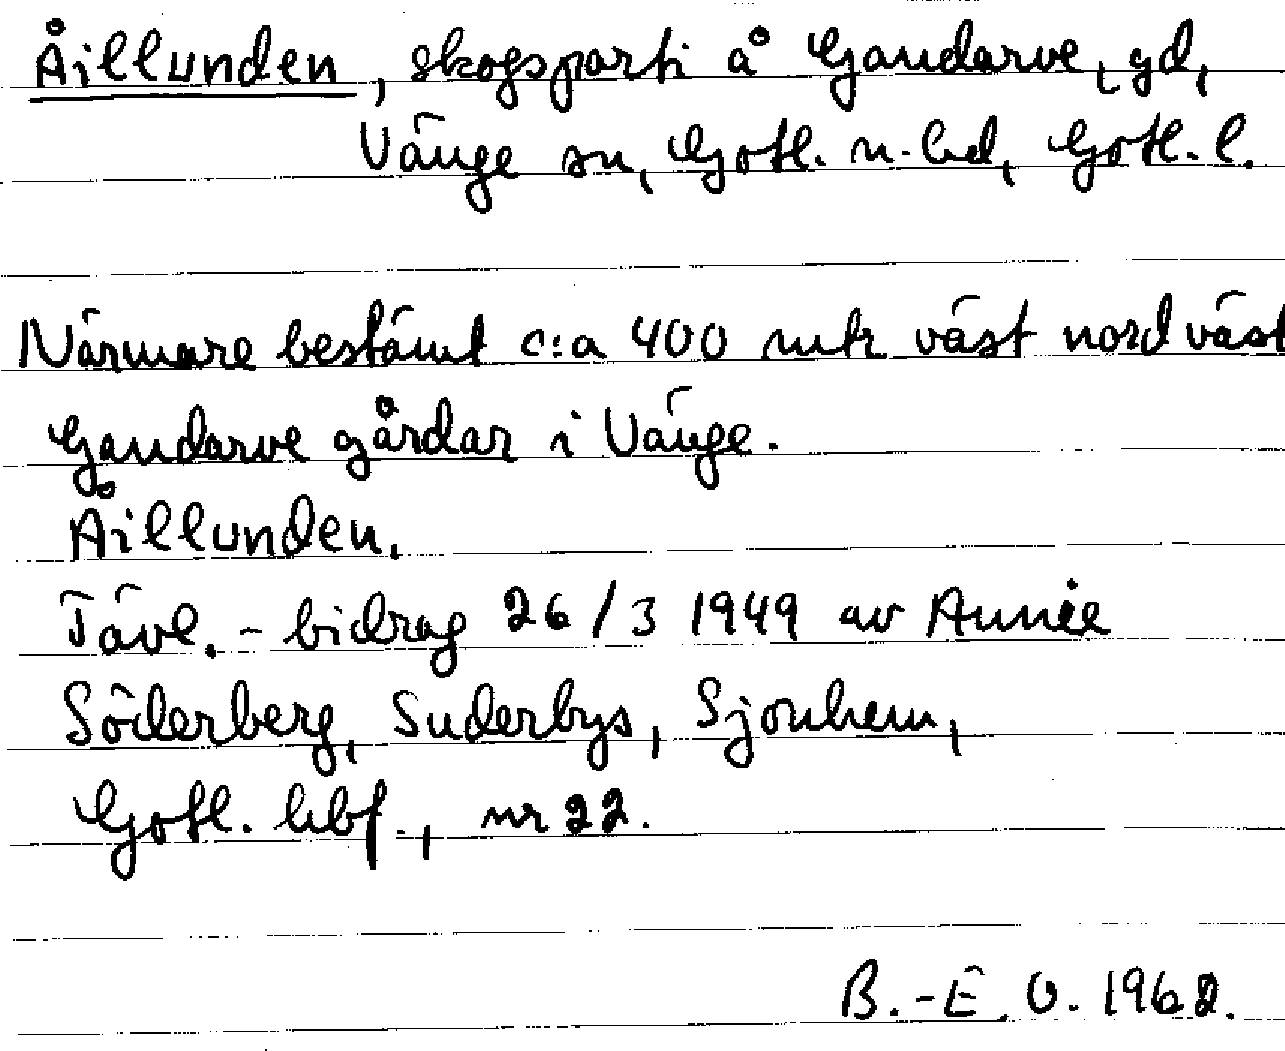 Åillunden, skogsparti å Gandarve, gd,
Vänge sn, Gotl. n. hd, Gotl. l.
Närmare bestämt c:a 400 mtr väst nordväst
Gandarve gårdar i Vänge.
Åillunden.
Tävl.-bidrag 26/3 1949 av Annie
Söderberg, Suderbys, Sjonhem,
Gotl. hbf., nr 22.
B.-E. O. 1962.